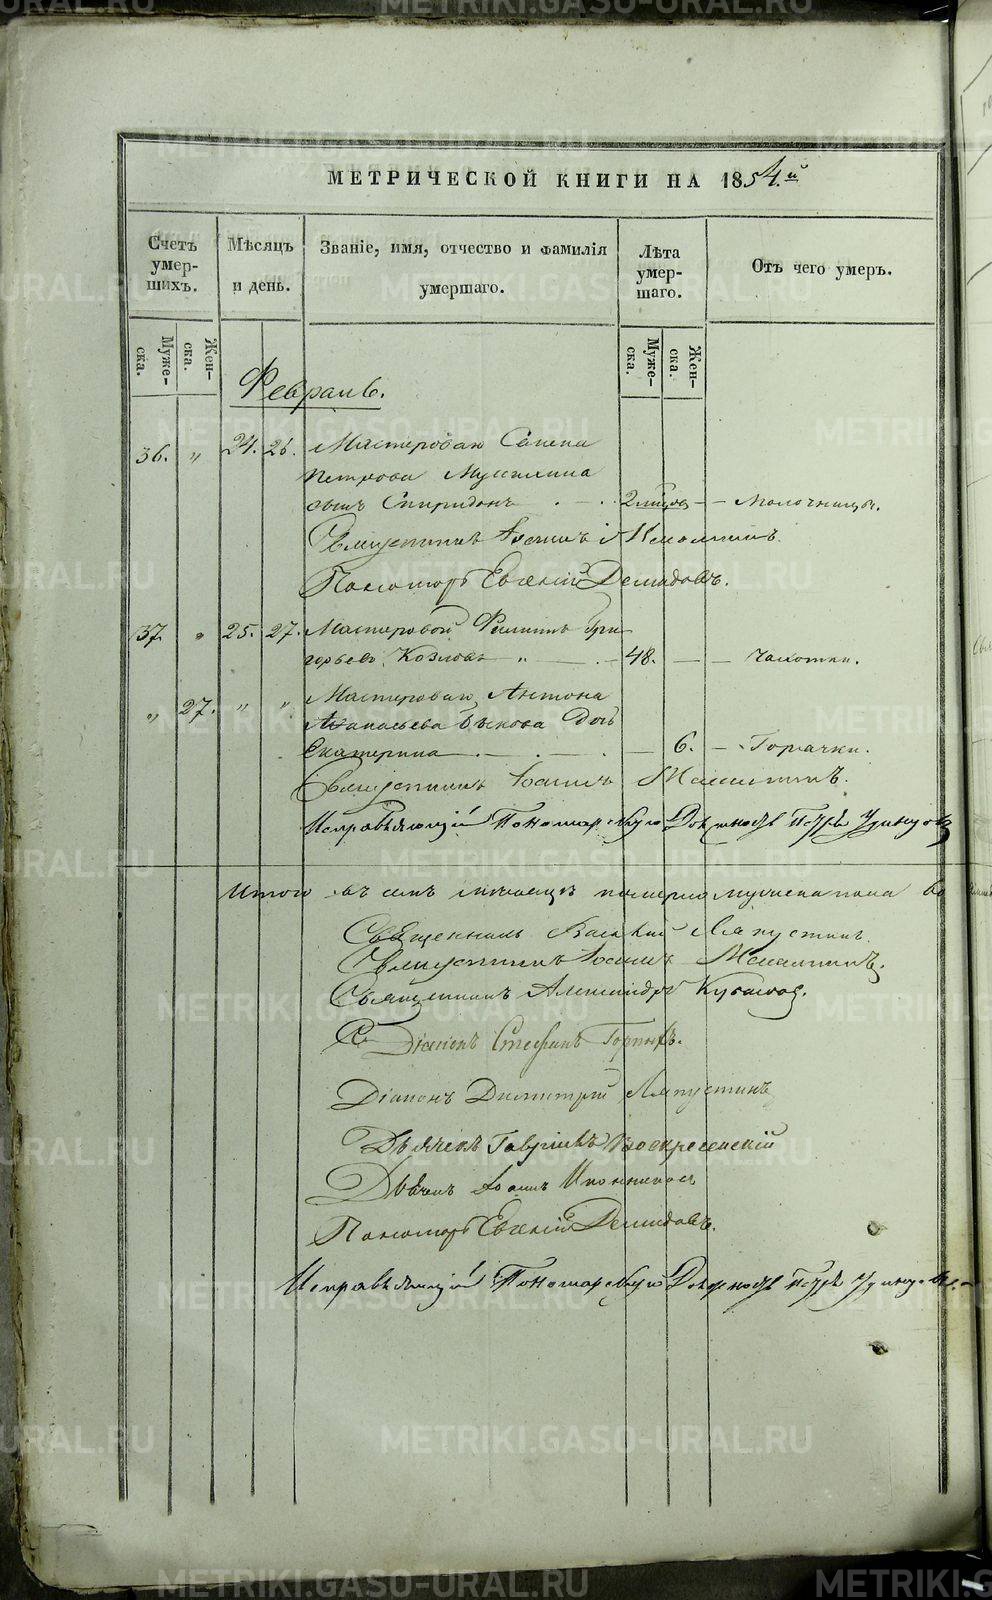 МЕТРИЧЕСКОЙ КНИГИ НА 1854.й
Счетъ умершихъ.
Мѣсяцъ и день.
Званіе, имя, отчество и фамилія умершаго.
Лѣта умершаго.
Отъ чего умеръ.
Мужеска.
Женска.
Мужеска.
Женска.
Февраль.
36. " 24. 26. Мастероваго Семена
Петрова
сынъ Спиридонъ 2 мѣсяц Молочницы.
Священникъ Іоаннъ
Пономарь Евгеній Демидовъ.
37. " 25. 27. Мастеровой Филиппъ Гри
горьевъ Козловъ " 48. Чахотки.
" 27. " " Мастероваго Антона
Аѳанасьева Быкова Дочь
Екатерина 6. Горячки.
Священникъ Іоаннъ
Исправляющій Пономарскую Должность Петръ Удинцовъ
Итого въ семъ мѣсяцѣ померло мужеска пола
Священникъ Василій Ляпустинъ
Священникъ Іоаннъ
Священникъ Александръ
Діаконъ Стефанъ
Діаконъ Димитрій Ляпустинъ
Дьячекъ Гавріилъ Воскресенскій
Дьячекъ Іоаннъ Иконниковъ
Пономарь Евгеній Демидовъ.
Исправляющій Пономарскую Должность Петръ Удинцовъ
METRIKI.GASO-URAL.RU